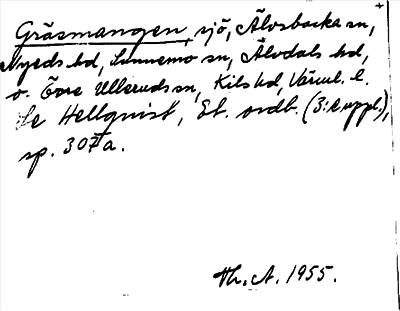 Gräsmangen, sjö, Älvsbacka sn,
Nyeds hd, Sunnemo sn, Älvdals hd,
o. Övre Ulleruds sn, Kils hd, Värml. l.
Se Hellquist, Et. ordb. (3:e uppl.),
sp. 307a.
Th. A. 1955.